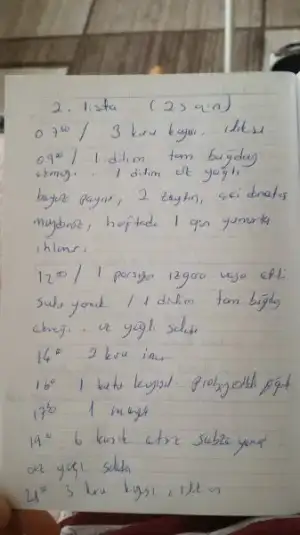 2. lista (2 sain)
07⁰⁰ / 3 kuru kayısı. ılık su
09⁰⁰ / 1 dilim tam buğday
ekmeği. 1 dilim az yağlı
beyaz peynir, 2 zeytin,
maydanoz, haftada 1 gün yumurta
ıhlamur.
12⁰⁰ / 1 porsiyon ızgara veya etli
sulu yemek / 1 dilim tam buğday
ekmeği. az yağlı salata
14⁰⁰ 2 kuru incir
16⁰ 1 kutu
17³⁰ 1 meyve
19⁰ 6 kaşık etsiz sebze yemeği
az yağlı salata
21⁰ 3 kuru kayısı, ılık su